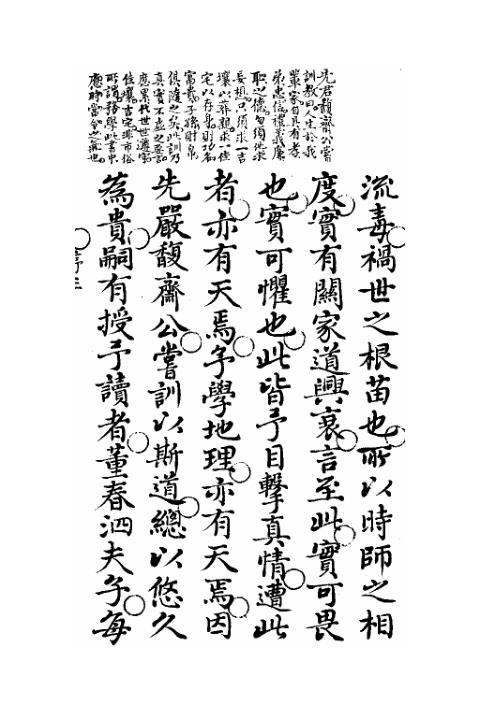 先君馥齋公嘗
訓教曰人生於我
輩家只貝有孝
弟忠信禮義廉
耻之儔勿須他求
妄想只須求一吉
壤以葬親求一佳
宅以存身則功名
富貴子孫財帛
俱隨之矣此訓乃
真實不虛之至語
應累我世世遵守
佳壤吉宅非市俗
所謂務學此書中
應時當令之氣也
流毒禍世之根苗也所以時師之相
度實有關家道興衰言至此實可畏
也實可懼也此皆予目擊真情遭此
者亦有天焉予學地理亦有天焉因
先嚴馥齋公嘗訓以斯道總以悠久
為貴嗣有授予讀者董春泗夫子每
序三